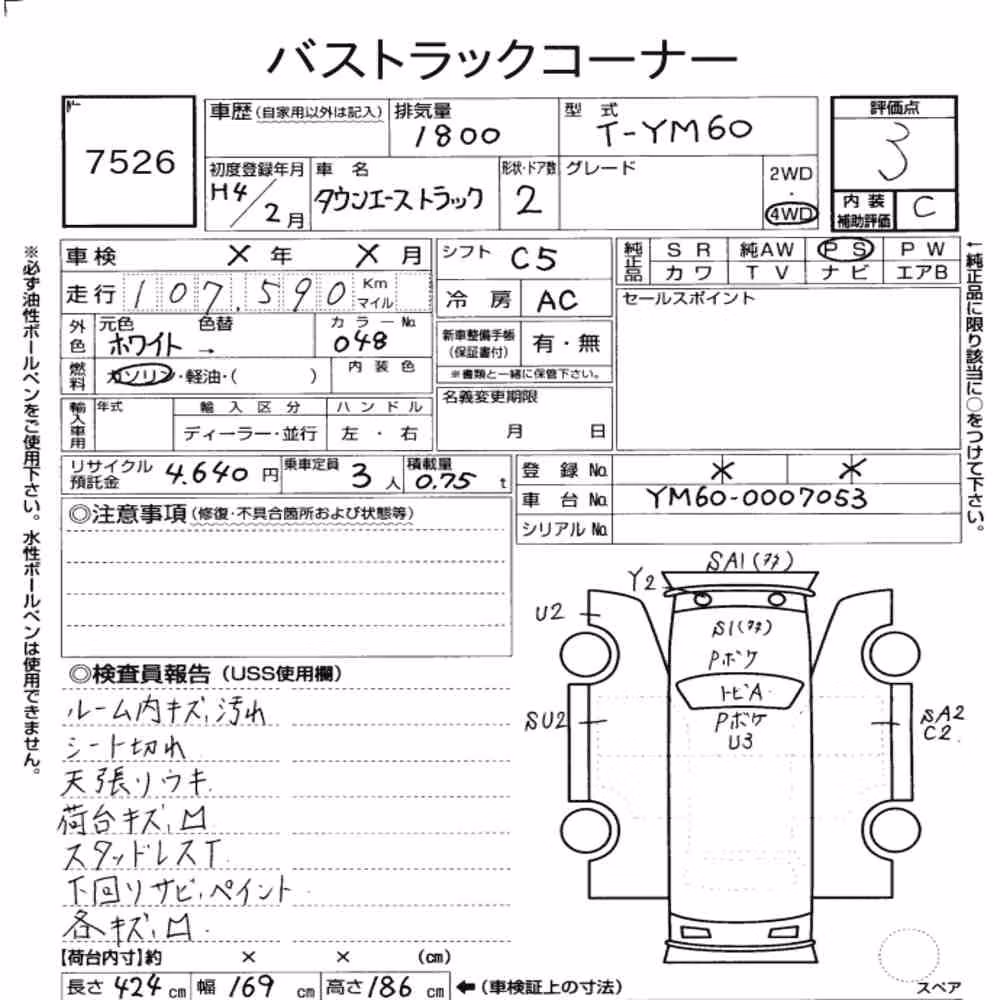 バストラックコーナー
7526
車歴 (自家用以外は記入) 排気量 1800 型式 T-YM60 評価点 3
初度登録年月 H4/2月 車名 タウンエーストラック 形状・ドア数 2 グレード 2WD・4WD 内装補助評価 C
車検 × 年 × 月 シフト C5 純正品 SR 純AW PS PW
カワ TV ナビ エアB
走行 107.590 Km マイル 冷房 AC セールスポイント
外色 元色 ホワイト → 色替 カラーNo. 048 新車整備手帳 (保証書付) 有・無
※書類と一緒に保管下さい。
燃料 ガソリン・軽油・( ) 内装色
輸入車用 年式 輸入区分 ハンドル 名義変更期限
ディーラー・並行 左・右 月 日
リサイクル預託金 4.640 円 乗車定員 3 人 積載量 0.75 t 登録No. × ×
車台No. YM60-0007053
シリアルNo.
◎注意事項(修復・不具合箇所および状態等)
◎検査員報告(USS使用欄)
ルーム内キズ、汚れ
シート切れ
天張リウキ
荷台キズ、凹
スタッドレスT
下回リサビ、ペイント
各キズ、凹
【荷台内寸】約 × × (cm)
長さ 424 cm 幅 169 cm 高さ 186 cm ←(車検証上の寸法)
SA1(フタ)
Y2
U2
S1(フタ)
Pボケ
トビA
SU2
Pボケ
U3
SA2
C2
スペア
※必ず油性ボールペンをご使用下さい。水性ボールペンは使用できません。
←純正品に限り該当に○をつけて下さい。